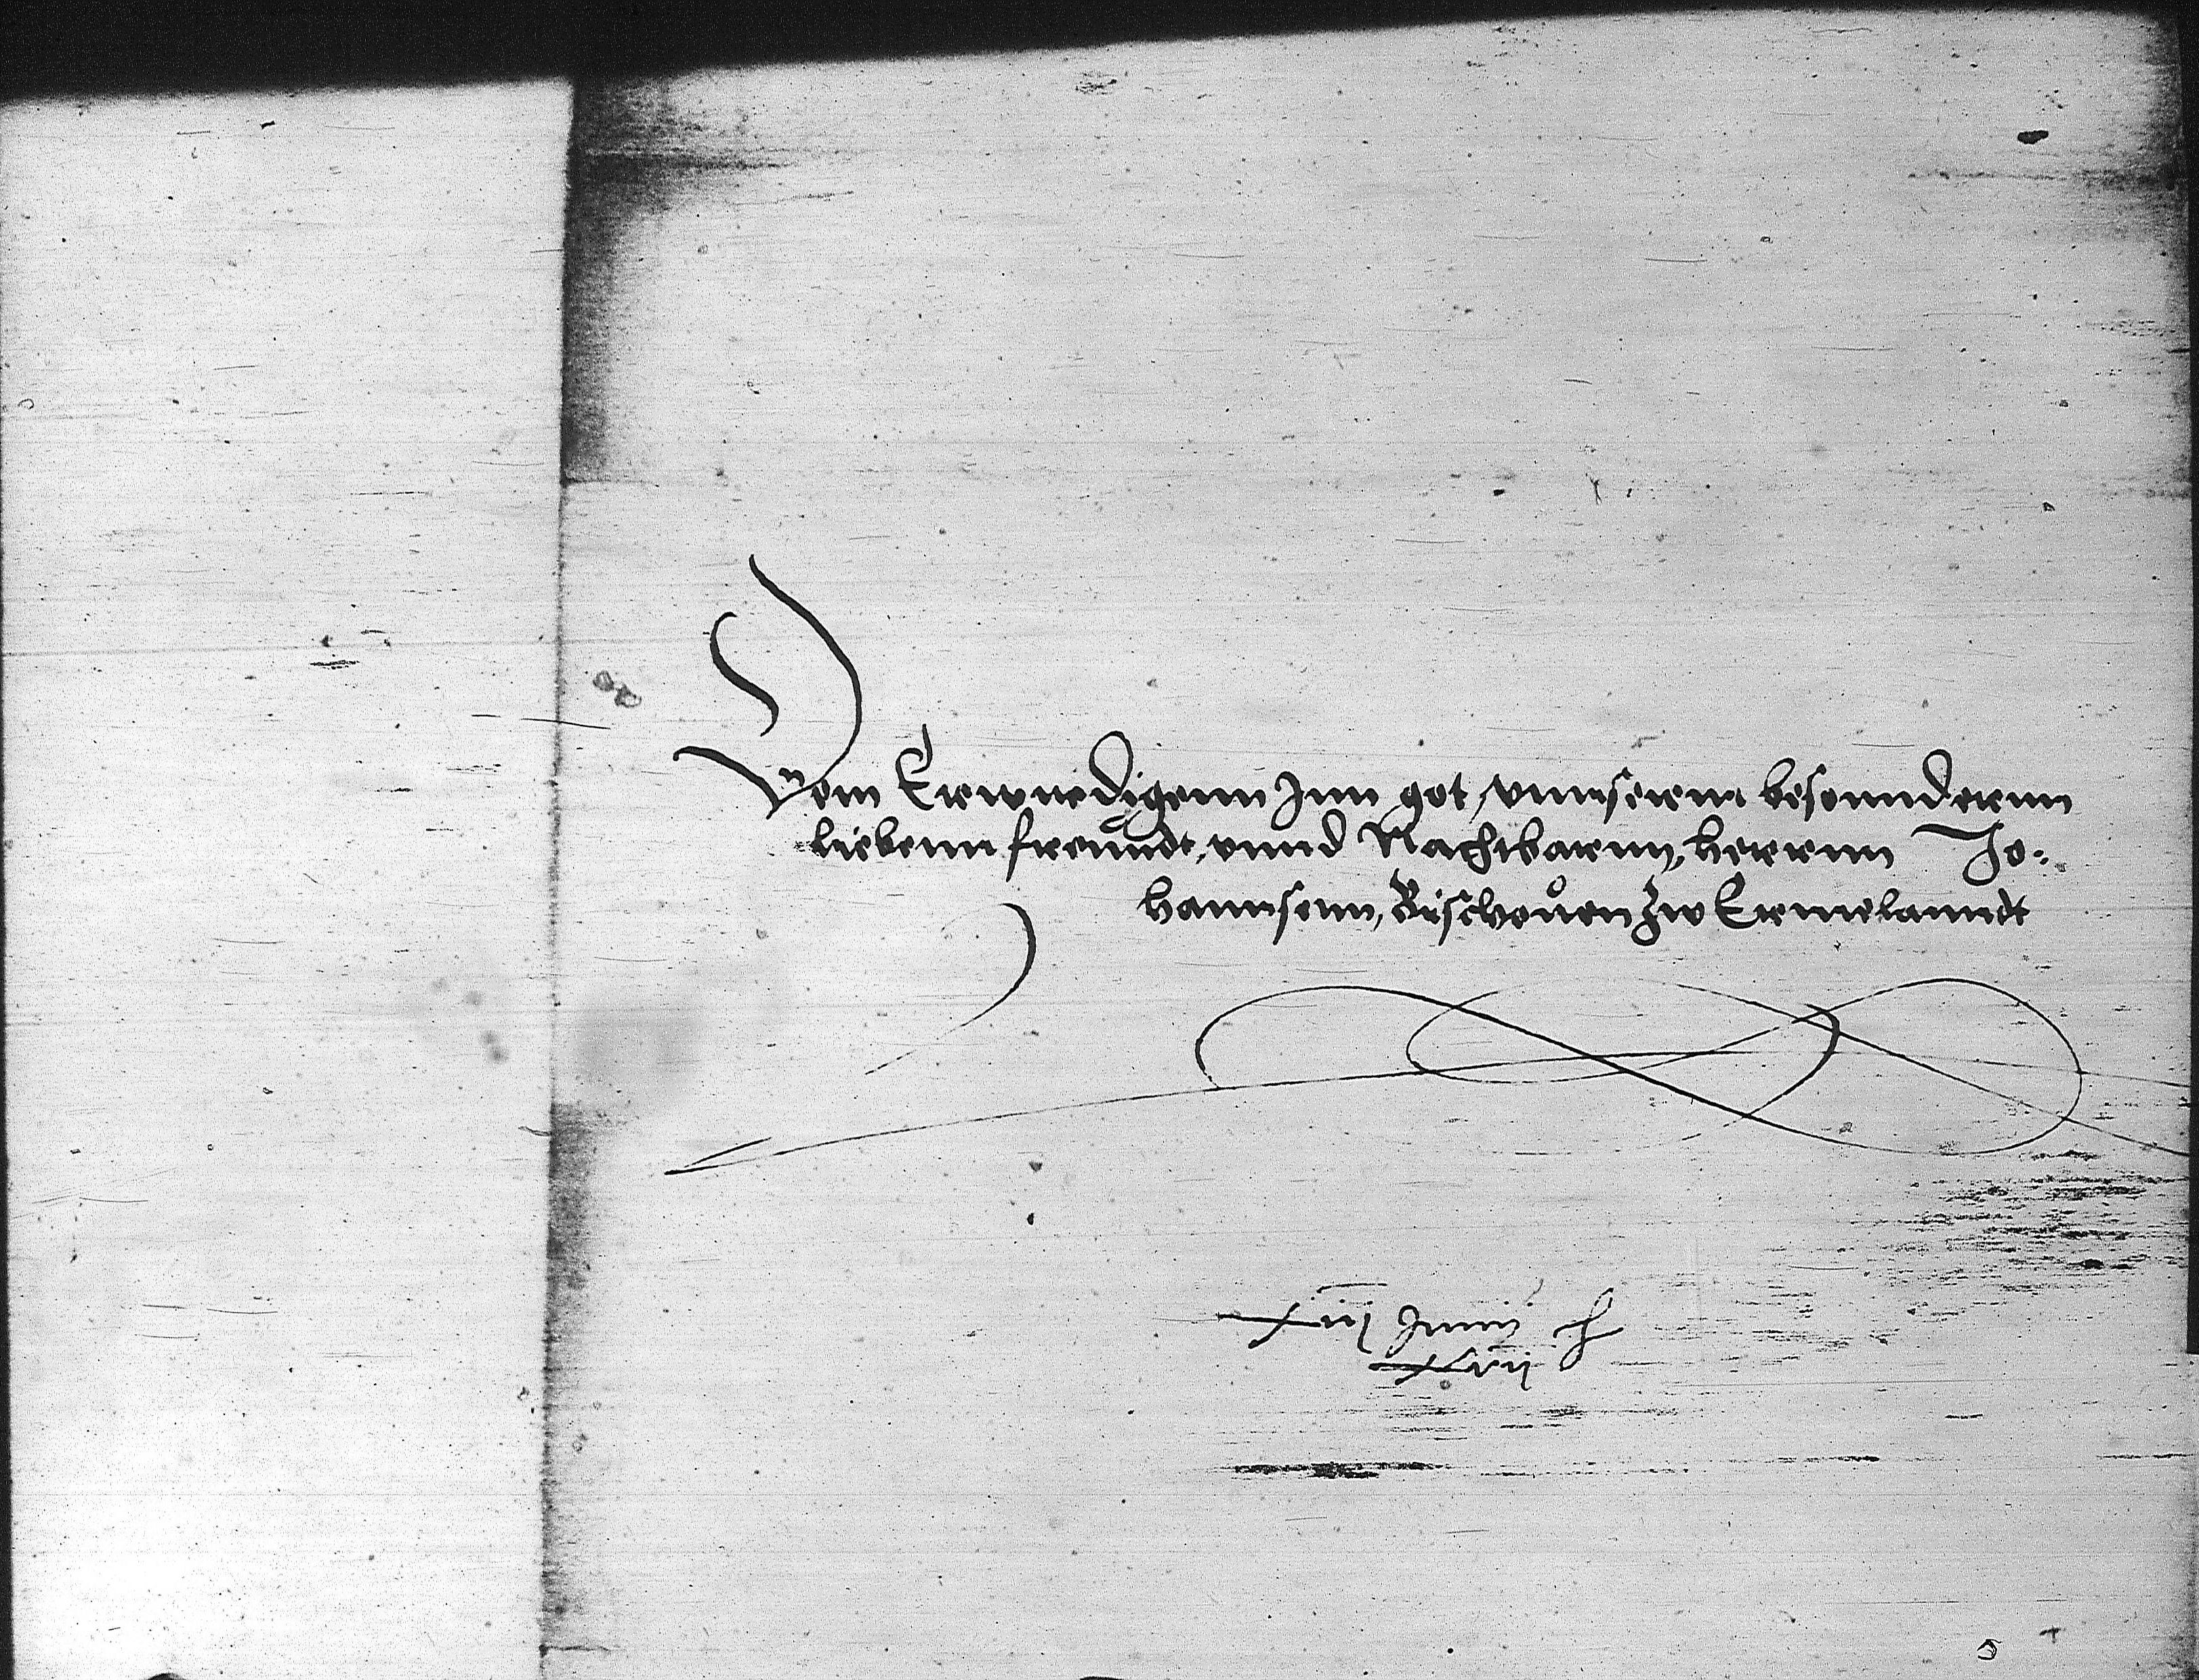 Dem Erwirdigenn Inn got, vnnserm besonndernn
liebenn freundt, vnnd Nachtbarnn, herrnn Jo-
hannsenn, Bischouen zw Ermelanndt
xiij Junij
xxvij